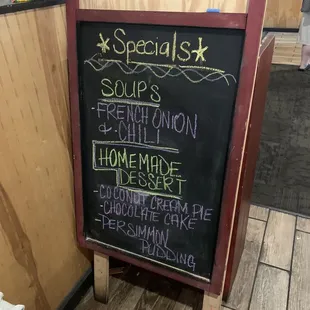 Specials
SOUPS
-FRENCH ONION
& -CHILI
HOMEMADE
DESSERT
-COCONUT CREAM PIE
-CHOCOLATE CAKE
-PERSIMMON
PUDDING